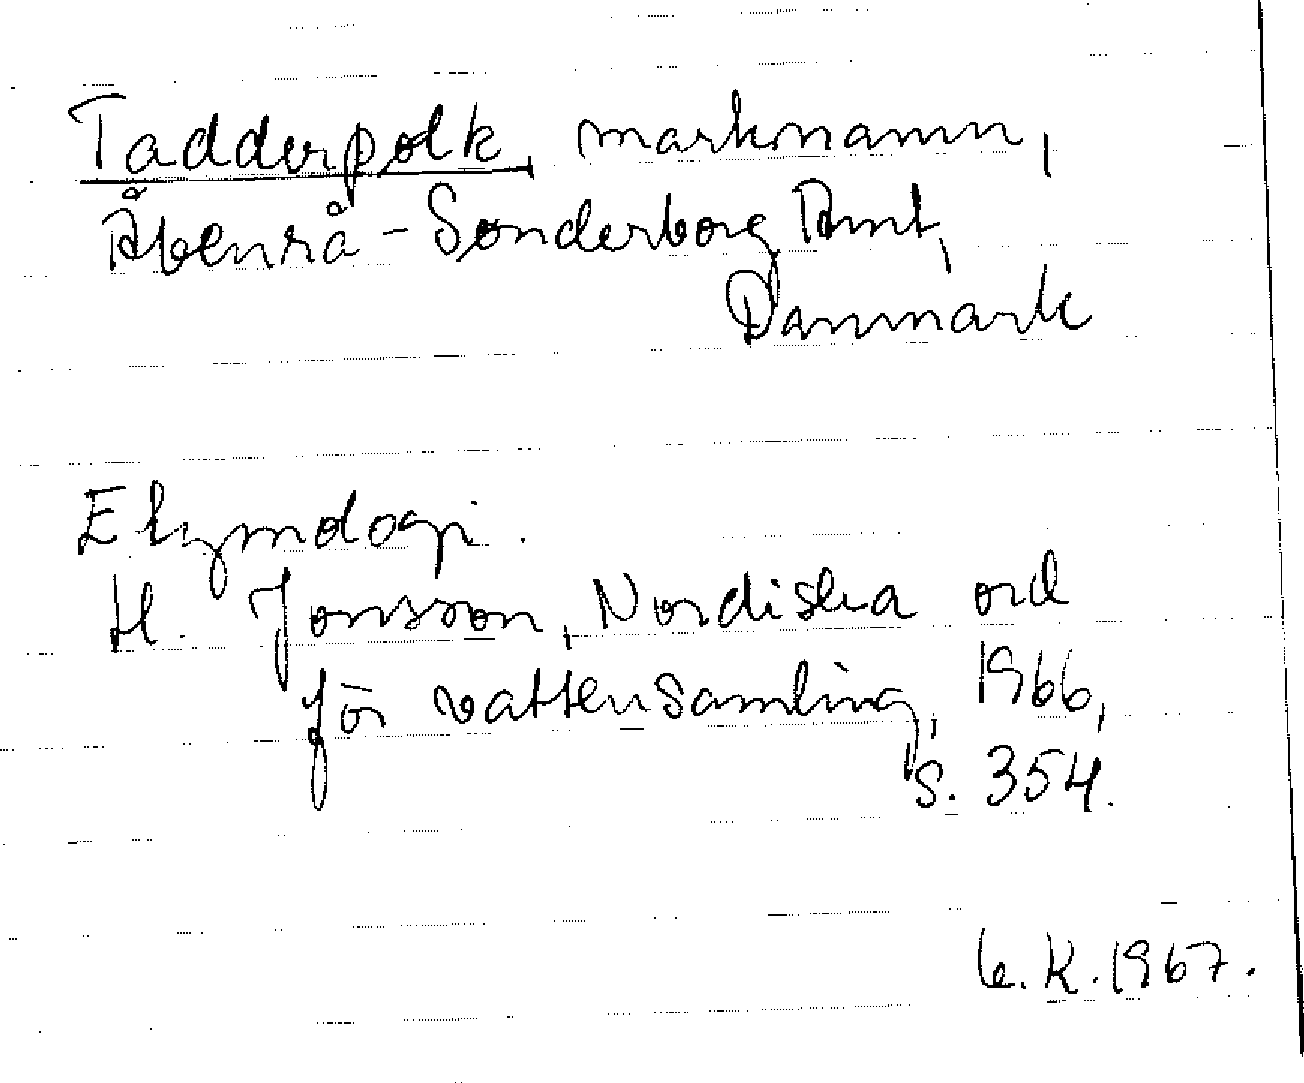 Tadderpølk, marknamn,
Åbenrå - Sønderborg Amt,
Danmark
Etymologi.
H. Jonsson, Nordiska ord
för vattensamling, 1966,
s. 354.
K. 1967.